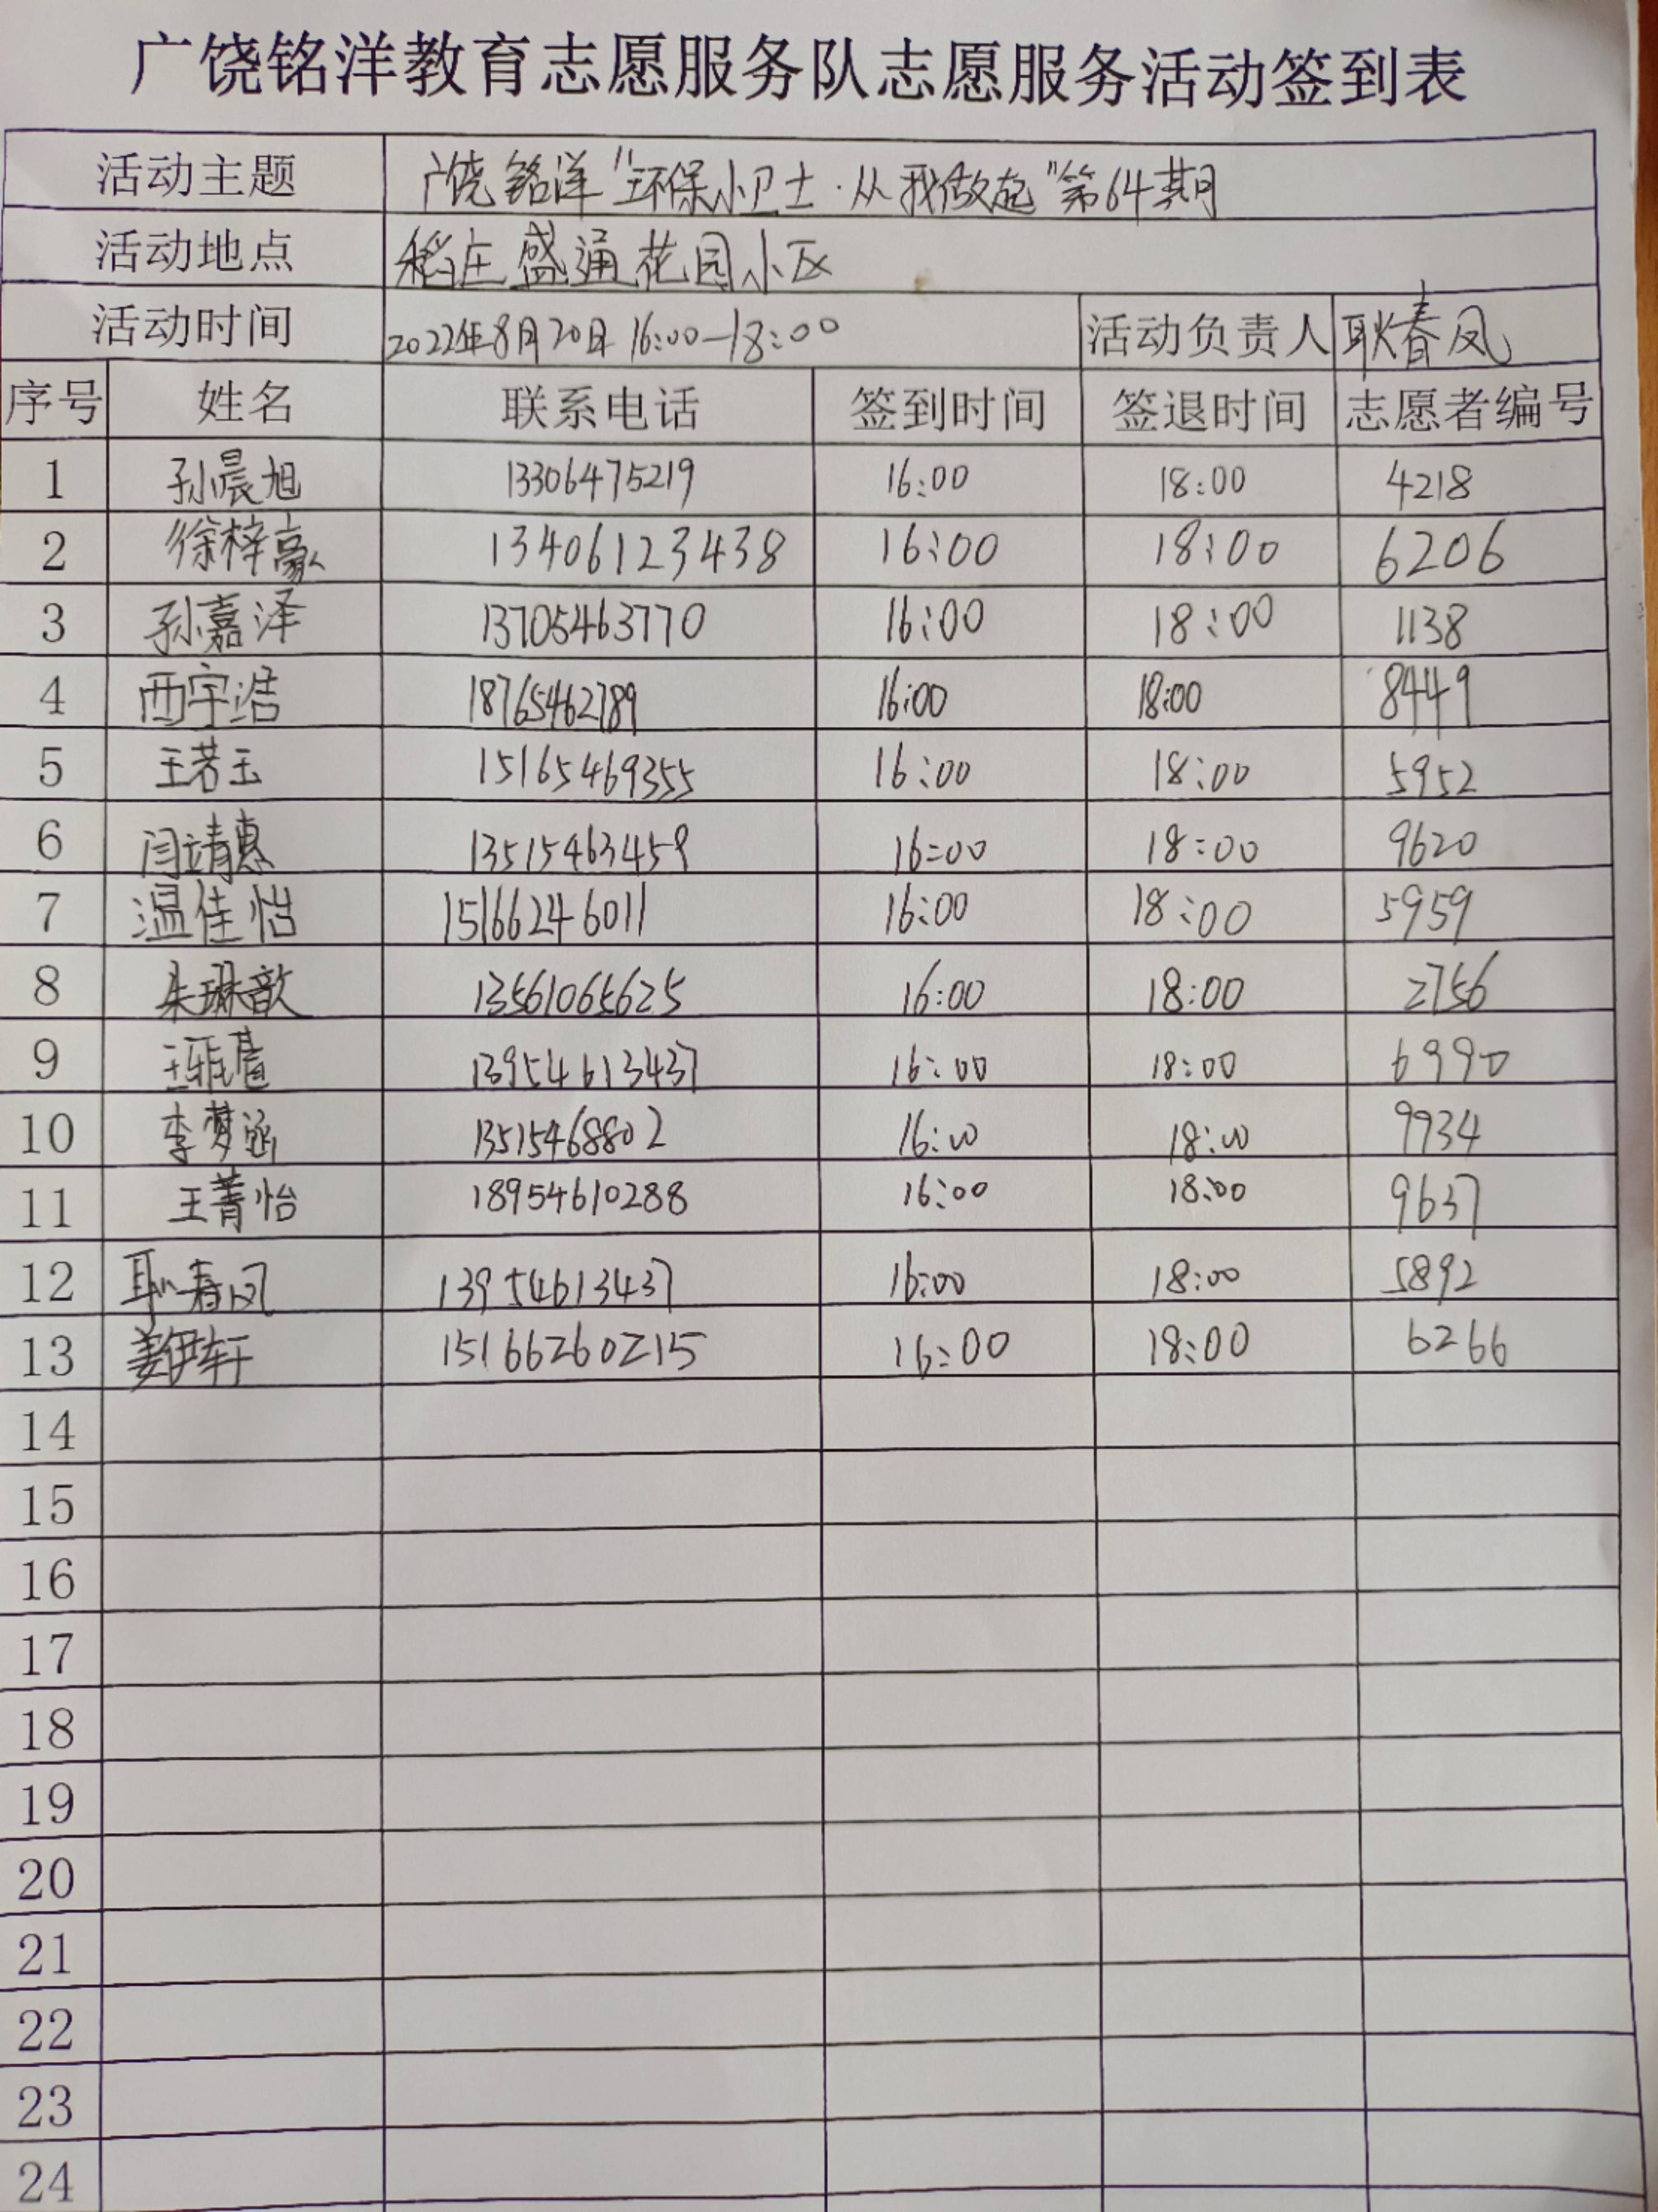 广饶铭洋教育志愿服务队志愿服务活动签到表
活动主题 广饶铭洋"环保小卫士·从我做起"第64期
活动地点 稻庄盛通花园小区
活动时间 2022年8月20日 16:00—18:00 活动负责人 耿春凤
序号 姓名 联系电话 签到时间 签退时间 志愿者编号
1 孙晨旭 13306475219 16:00 18:00 4218
2 徐梓豪 134061123438 16:00 18:00 6206
3 孙嘉泽 13705463770 16:00 18:00 1138
4 西宇浩 18765462789 16:00 18:00 8449
5 王若玉 15165469355 16:00 18:00 5952
6 闫靖惠 13515463459 16:00 18:00 9620
7 温佳怡 15166246011 16:00 18:00 5959
8 朱琳歆 13561065625 16:00 18:00 2756
9 王雅萱 13954613437 16:00 18:00 6990
10 李梦涵 13515468802 16:00 18:00 9934
11 王菁怡 18954610288 16:00 18:00 9637
12 耿春凤 13954613437 16:00 18:00 5892
13 姜伊轩 15166260215 16:00 18:00 6266
14
15
16
17
18
19
20
21
22
23
24